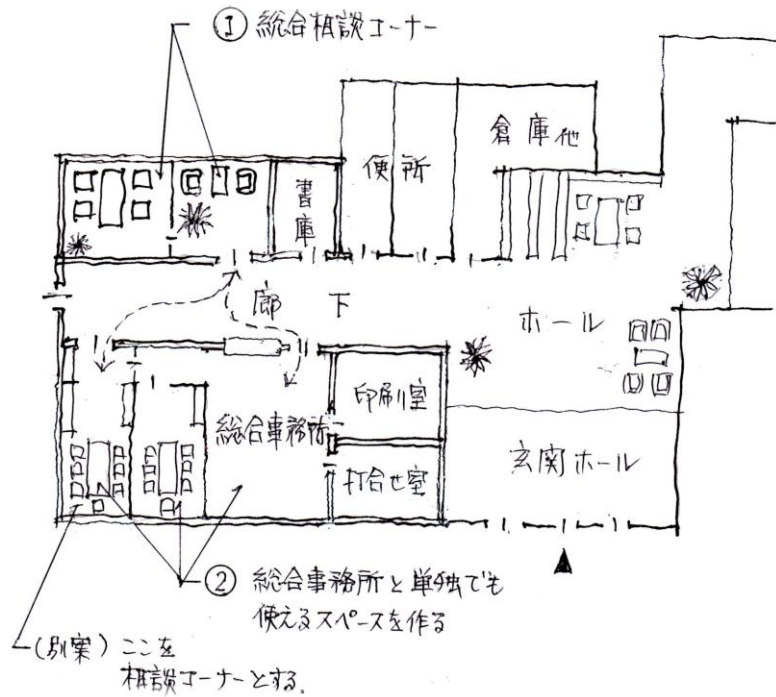 ① 総合相談コーナー
倉庫他
便所
書庫
廊下
ホール
印刷室
総合事務所
打合せ室
玄関ホール
② 総合事務所と単独でも
使えるスペースを作る
(別案) ここを
相談コーナーとする。